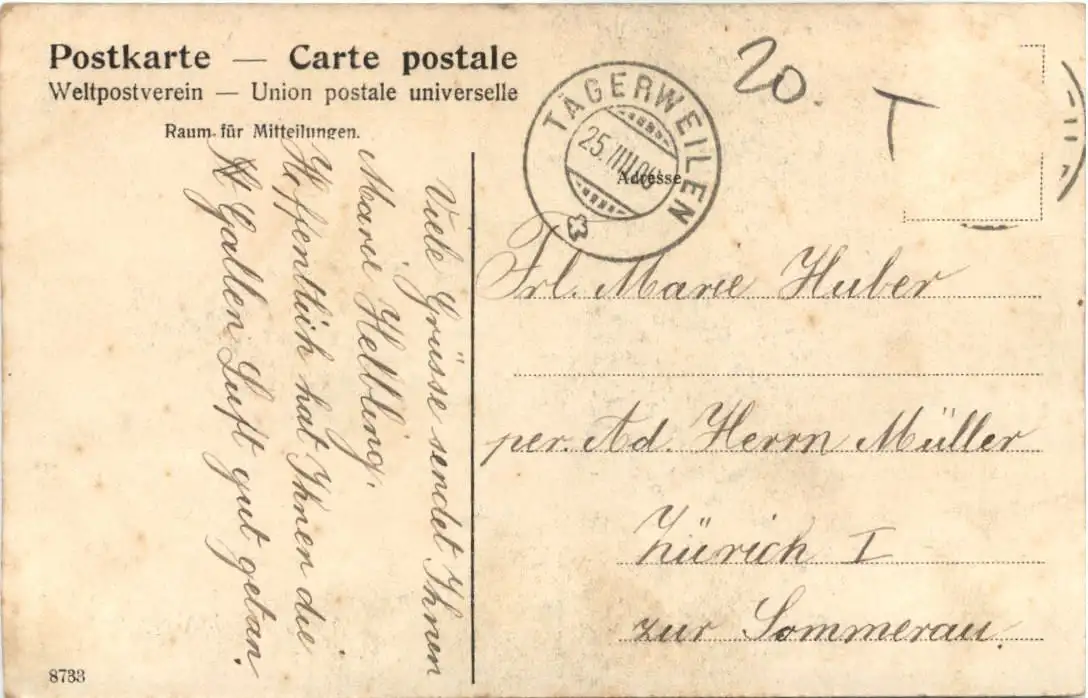 Postkarte — Carte postale
Weltpostverein — Union postale universelle
Raum für Mitteilungen.
TÄGERWEILEN
25.
Adresse
20.
T
Frl. Marie Huber
per. Ad. Herrn Müller
Zürich I
zur Sommerau.
Viele Grüsse sendet Ihnen
Marie Helbling.
Hoffentlich hat Ihnen die
St Gallen Luft gut getan.
8733